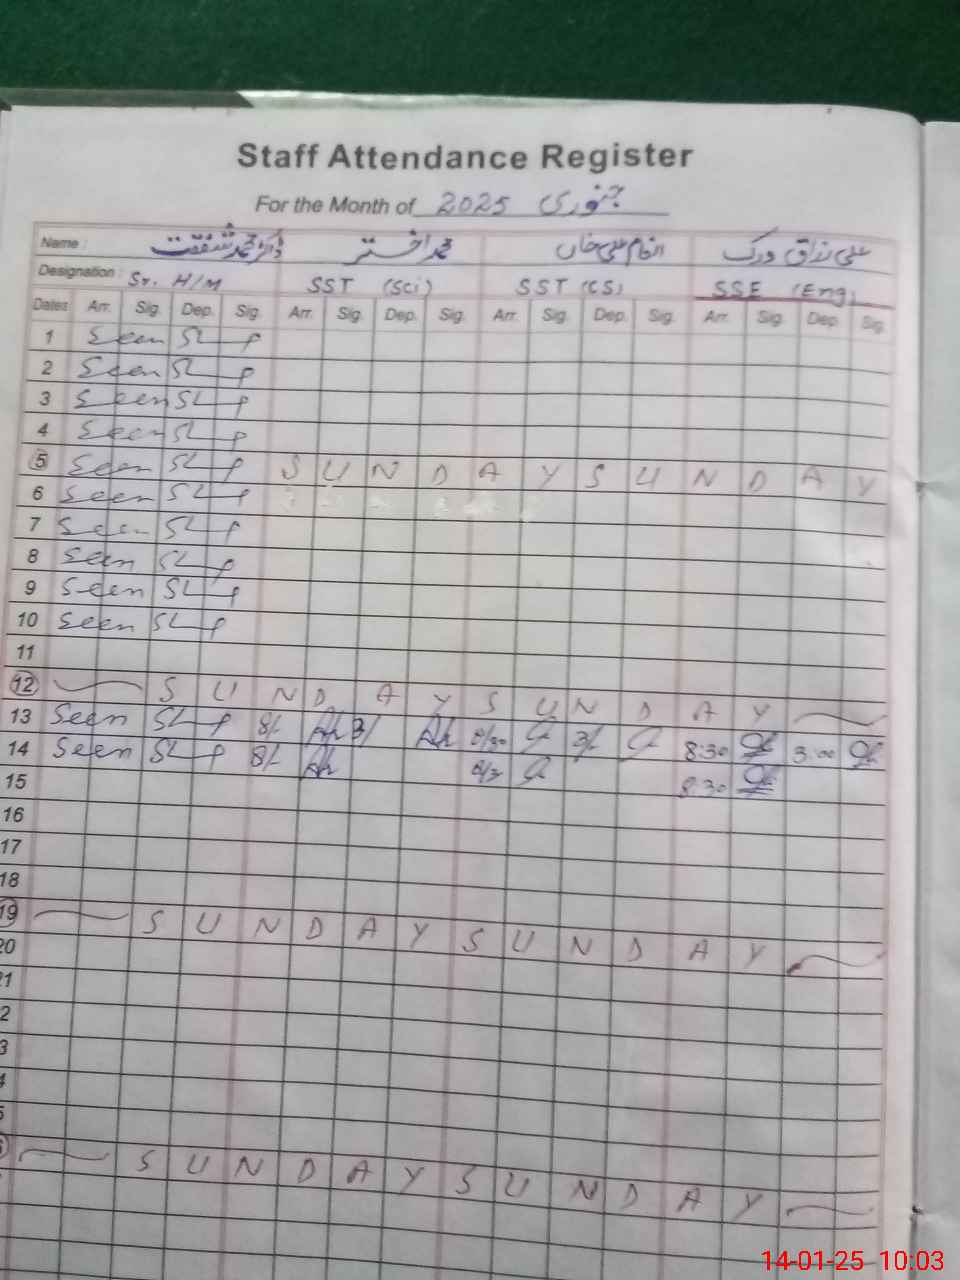 Staff Attendance Register
For the Month of 2025 جنوری
Name : ڈاکٹر محمد شفقت محمد اختر انعام علی خاں علی رزاق ورک
Designation : Sr. H/M SST (Sci) SST (CS) SSE (Eng)
Dates Arr. Sig. Dep. Sig. Arr. Sig. Dep. Sig. Arr. Sig. Dep. Sig. Arr. Sig. Dep. Sig.
1 Seen
2 Seen
3 Seen
4 Seen
5 Seen S U N D A Y S U N D A Y
6 Seen
7 Seen
8 Seen
9 Seen
10 Seen
11
12 S U N D A Y S U N D A Y
13 Seen 8/- 3/ 3/- 8:30 3:00
14 Seen 8/- 8:30
15
16
17
18
19 S U N D A Y S U N D A Y
20
21
2
3
S U N D A Y S U N D A Y
14-01-25 10:03